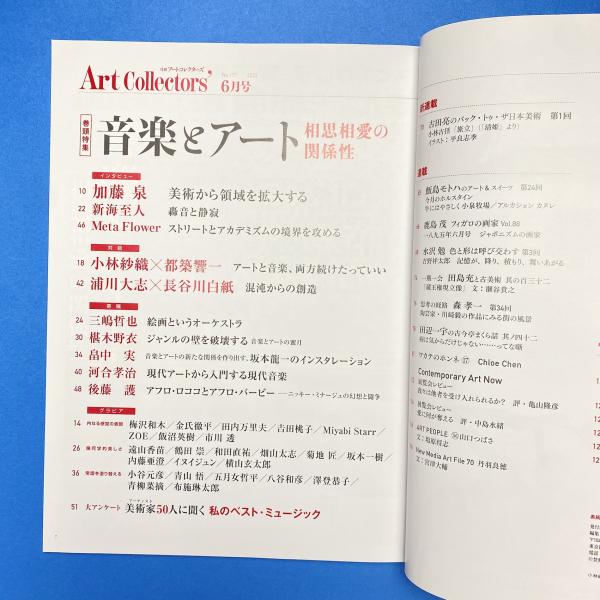 月刊アートコレクターズ
Art Collectors'
6月号
巻頭特集
音楽とアート 相思相愛の
関係性
インタビュー
10 加藤 泉 美術から領域を拡大する
22 新海至人 轟音と静寂
46 Meta Flower ストリートとアカデミズムの境界を攻める
対談
18 小林紗織×都築響一 アートと音楽、両方続けたっていい
42 浦川大志×長谷川白紙 混沌からの創造
24 三嶋哲也 絵画というオーケストラ
30 椹木野衣 ジャンルの壁を破壊する 音楽とアートの蜜月
34 畠中 実 音楽とアートの新たな関係を作り出す、坂本龍一のインスタレーション
40 河合孝治 現代アートから入門する現代音楽
48 後藤 護 アフロ・ロココとアフロ・バービー ―ニッキー・ミナージュの幻想と闘争
グラビア
14 内なる感覚の表現 梅沢和木/金氏徹平/田内万里夫/吉田桃子/Miyabi Starr/
ZOE/飯沼英樹/市川 透
26 幾何学的美しさ 遠山香苗/鶴田 崇/和田直祐/畑山太志/菊地 匠/坂本一樹/
内藤亜澄/イヌイジュン/横山玄太郎
36 常識を塗り替える 小谷元彦/青山 悟/五月女哲平/八谷和彦/澤登恭子/
青柳菜摘/布施琳太郎
51 大アンケート 美術家50人に聞く 私のベスト・ミュージック
アーティスト
新連載
古田亮のバック・トゥ・ザ日本美術 第1回
小林古径「旅立」(「清姫」より)
イラスト:平良志季
連載
飯島モトハのアート&スイーツ 第24回
今月のホルスタイン
牛にはやさしく小泉牧場/アルカション カヌレ
鹿島 茂 フィガロの画家 Vol.88
一八九五年六月号 ジャポニズムの画家
水沢 勉 色と形は呼び交わす 第3回
吉野祥太郎 記憶が、降り、積もり、舞いあがる
一期一会 田島充と古美術 其の百三十二
「蔵王権現立像」 文:瀬谷貴之
思考の経路 森 孝一 第34回
陶芸家・川崎毅の作品にみる街の風景
田辺一宇の古今亭まくら話 其ノ四十二
病は気からだけじゃない……ってな噺
ワカテのホンネ ⑰ Chloe Chen
Contemporary Art Now
展覧会レビュー
我々は他者を受け入れられるか? 評・亀山隆彦
展覧会レビュー
愛に何が奪える 評・中島水緒
ART PEOPLE 山口つばさ
文:塩原将志
New Media Art File 70 丹羽良徳
文:宮津大輔